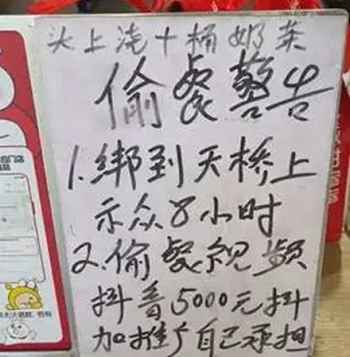 头上浇十桶奶茶
偷餐警告
1.绑到天桥上
示众8小时
2.偷餐视频
抖音5000元抖
加推广自己承担